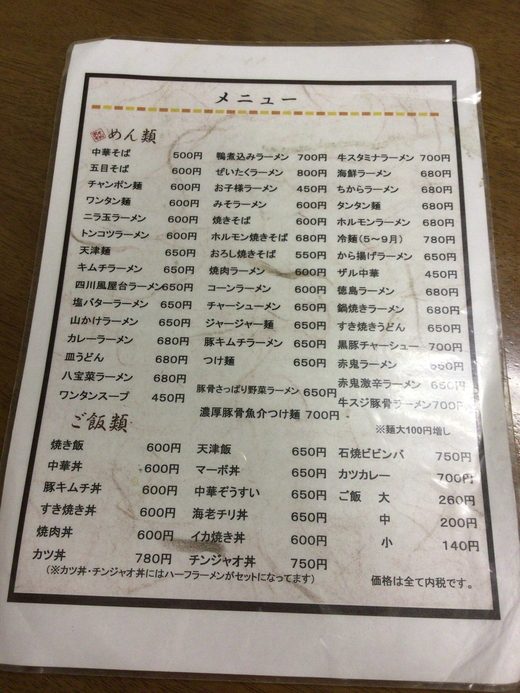 メニュー
めん類
中華そば 500円
五目そば 600円
チャンポン麺 600円
ワンタン麺 600円
ニラ玉ラーメン 600円
トンコツラーメン 600円
天津麺 650円
キムチラーメン 650円
四川風屋台ラーメン650円
塩バターラーメン 650円
山かけラーメン 650円
カレーラーメン 680円
皿うどん 680円
八宝菜ラーメン 680円
ワンタンスープ 450円
鴨煮込みラーメン 700円
ぜいたくラーメン 800円
お子様ラーメン 450円
みそラーメン 600円
焼きそば 600円
ホルモン焼きそば 680円
おろし焼きそば 550円
焼肉ラーメン 600円
コーンラーメン 600円
チャーシューメン 650円
ジャージャー麺 650円
豚キムチラーメン 650円
つけ麺 650円
豚骨さっぱり野菜ラーメン 650円
濃厚豚骨魚介つけ麺 700円
牛スタミナラーメン 700円
海鮮ラーメン 680円
ちからラーメン 680円
タンタン麺 680円
ホルモンラーメン 680円
冷麺(5～9月) 780円
から揚げラーメン 650円
ザル中華 450円
徳島ラーメン 680円
鍋焼きラーメン 680円
すき焼きうどん 650円
黒豚チャーシュー 700円
赤鬼ラーメン 650円
赤鬼激辛ラーメン 650円
牛スジ豚骨ラーメン700円
※麺大100円増し
ご飯類
焼き飯 600円
中華丼 600円
豚キムチ丼 600円
すき焼き丼 600円
焼肉丼 600円
カツ丼 780円
天津飯 650円
マーボ丼 650円
中華ぞうすい 650円
海老チリ丼 650円
イカ焼き丼 600円
チンジャオ丼 750円
石焼ビビンバ 750円
カツカレー 700円
ご飯 大 260円
中 200円
小 140円
(※カツ丼・チンジャオ丼にはハーフラーメンがセットになってます)
価格は全て内税です。